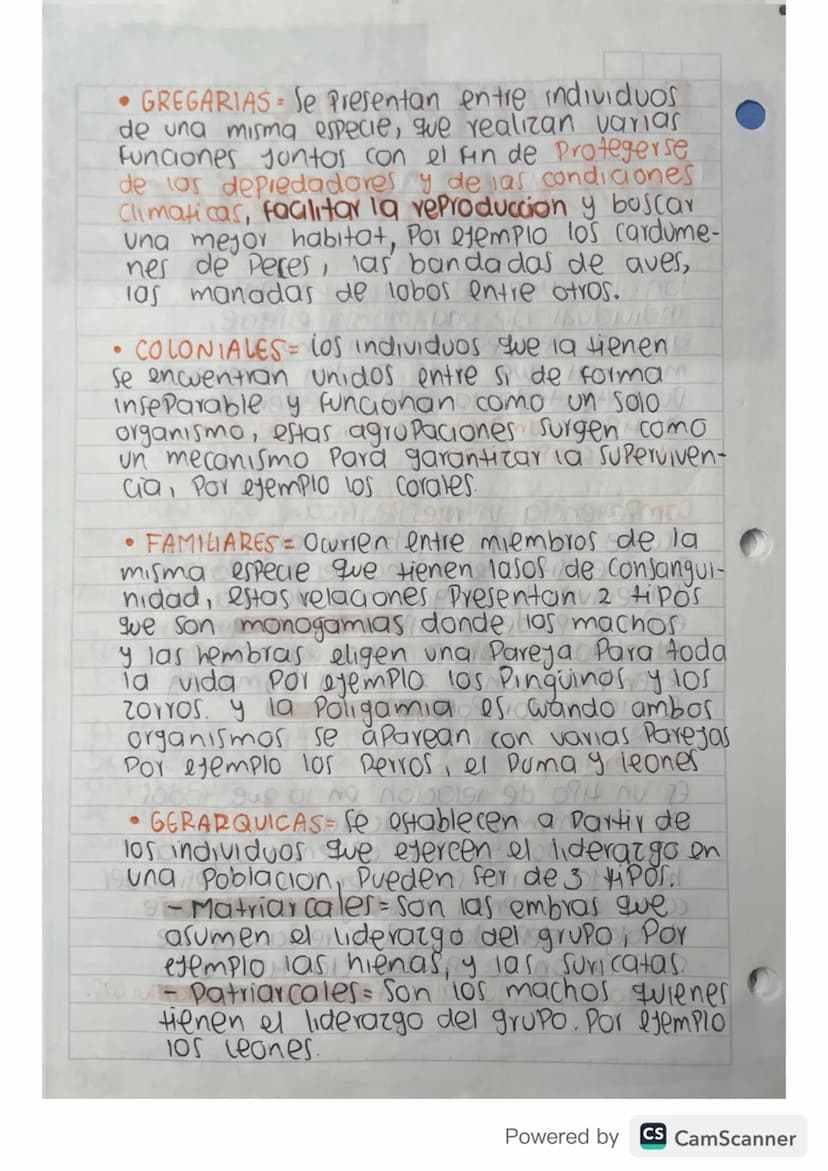 • GREGARIAS= Se Presentan entre individuos
de una misma especie, que realizan varias
funciones juntos con el fin de Protegerse
de los depredadores y de las condiciones
Climaticas, facilitar la reproduccion y buscar
una mejor habitat, Por ejemplo los cardume-
nes de Peces, las bandadas de aves,
las manadas de lobos entre otros.
• COLONIALES= los individuos que la tienen
se encuentran unidos entre si de forma
inseparable y funcionan como un solo
organismo, estas agrupaciones surgen como
un mecanismo Para garantizar la superviven-
cia, Por ejemplo los corales.
• FAMILIARES= Ocurren entre miembros de la
misma especie que tienen lasos de consangui-
nidad, estas relaciones Presentan 2 tipos
que son monogamias donde los machos
y las hembras eligen una Pareja Para toda
la vida Por ejemplo los Pingüinos y los
zorros. y la Poligamia es cuando ambos
organismos se aparean con varias Parejas
Por ejemplo los Perros, el Puma y leones
• GERARQUICAS= Se establecen a Partir de
los individuos que ejercen el liderazgo en
una Poblacion, Pueden ser de 3 tipos.
- Matriarcales= son las embras que
asumen el liderazgo del grupo, Por
ejemplo las hienas, y las suricatas.
- Patriarcales= Son los machos quienes
tienen el liderazgo del grupo. Por ejemplo
los leones.
Powered by CS CamScanner